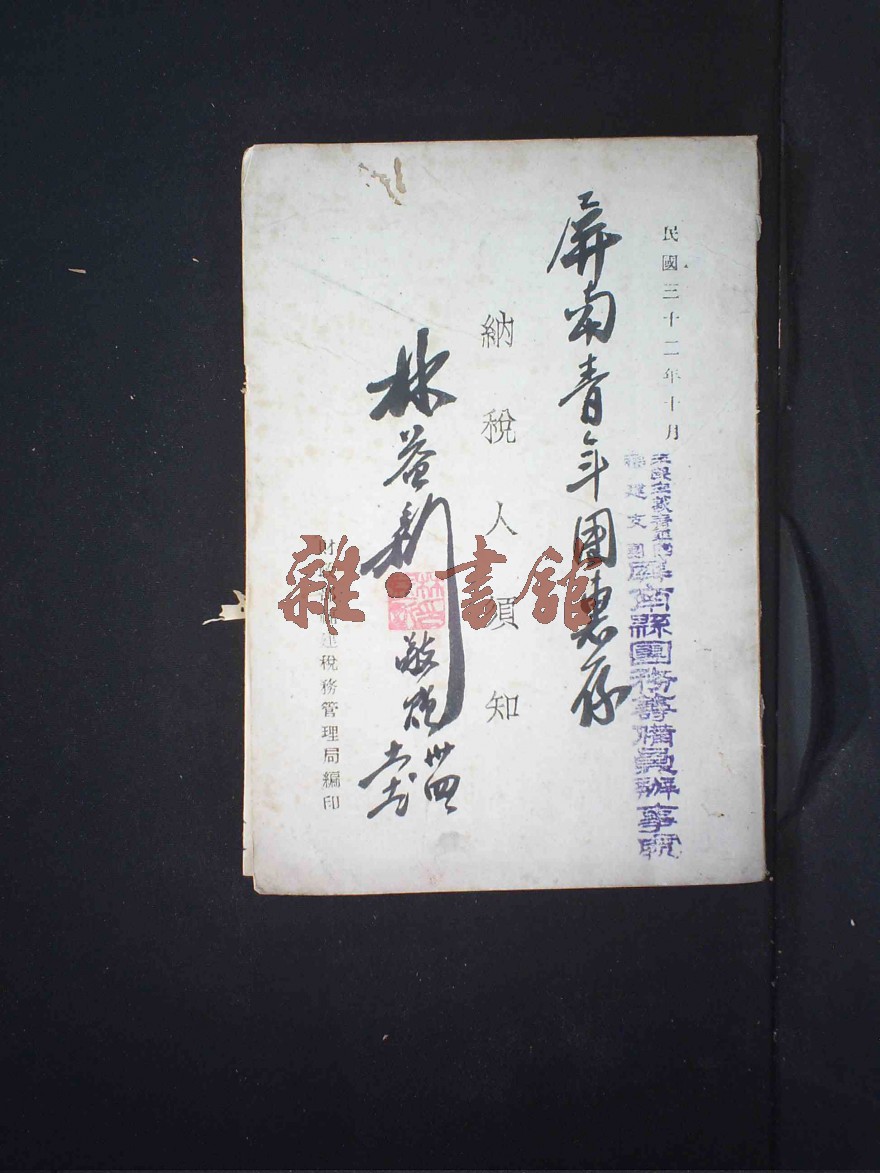 民國三十二年十月
福建支團
屏南縣團務籌備員辦事處
屏南青年團惠存
納稅人須知
林益
敬贈
財
稅務管理局編印
雜·書館